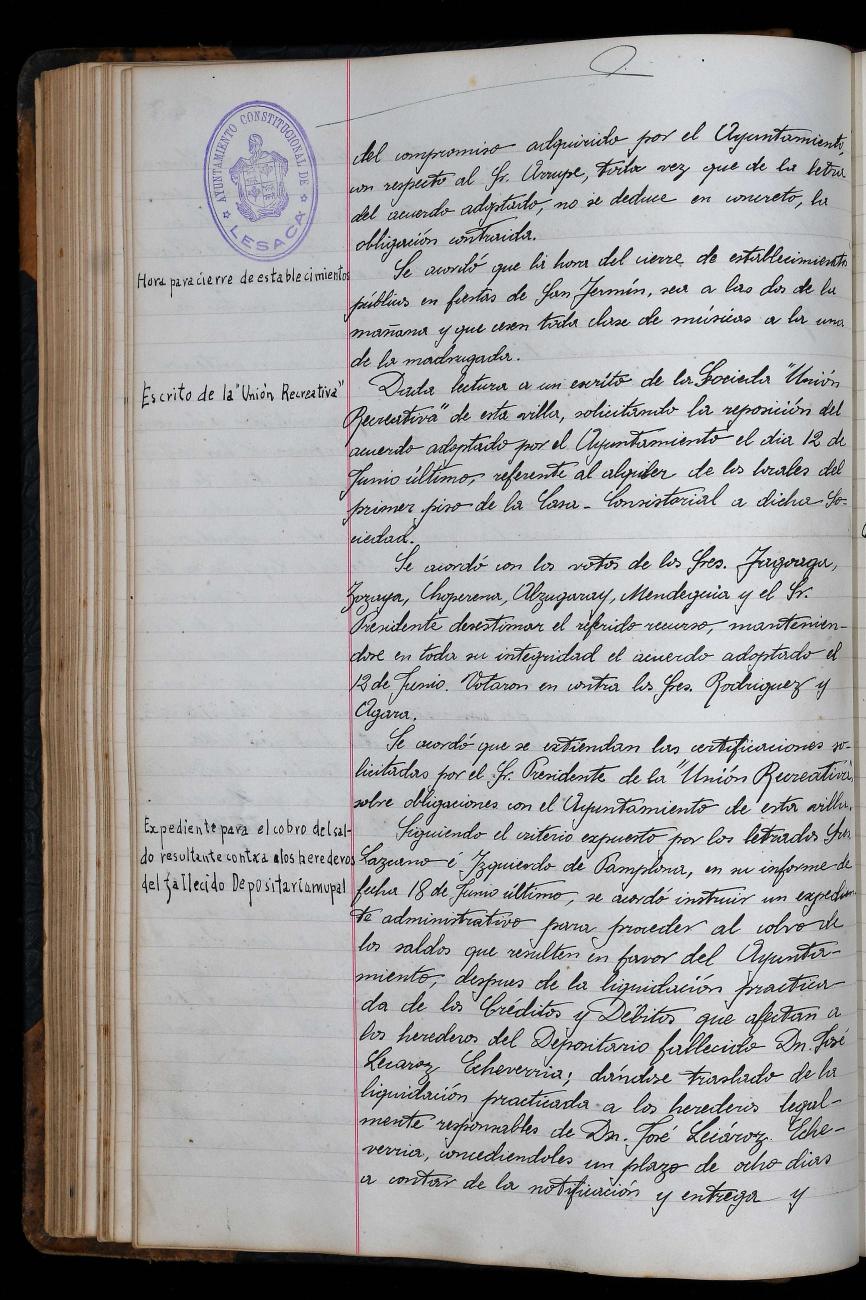 AYUNTAMIENTO CONSTITUCIONAL DE
LESACA
del compromiso adquirido por el Ayuntamiento,
con respecto al Sr. Arrupe, toda vez que de la letra
del acuerdo adoptado, no se deduce en concreto, la
obligación contraida.
Hora para cierre de establecimientos
Se acordó que la hora del cierre de establecimientos
públicos en fiestas de San Fermín, sea a las dos de la
mañana y que cesen toda clase de músicas a la una
de la madrugada.
Escrito de la "Unión Recreativa"
Dada lectura a un escrito de la Socieda "Unión
Recreativa" de esta villa, solicitando la reposición del
acuerdo adoptado por el Ayuntamiento el dia 12 de
Junio último, referente al alquiler de los locales del
primer piso de la Casa-Consistorial a dicha So-
ciedad.
Se acordó con los votos de los Sres. Jagoaga,
Zozaya, Choperena, Alzugaray, Mendeguia y el Sr.
Presidente desestimar el referido recurso, mantenien-
dose en toda su integridad el acuerdo adoptado el
12 de Junio. Votaron en contra los Sres. Rodriguez y
Agara.
Se acordó que se extiendan las certificaciones so-
licitadas por el Sr. Presidente de la "Unión Recreativa"
sobre obligaciones con el Ayuntamiento de esta villa.
Expediente para el cobro del sal-
do resultante contra a los herederos
del fallecido Depositario mupal
Siguiendo el criterio expuesto por los letrados Sres
Lazcano é Izquierdo de Pamplona, en su informe de
fecha 18 de Junio último, se acordó instruir un expedien-
te administrativo para proceder al cobro de
los saldos que resulten en favor del Ayunta-
miento, despues de la liquidación practica-
da de los Créditos y Débitos que afectan a
los herederos del Depositario fallecido Dn. José
Leciaroz Echeverria; dándose traslado de la
liquidación practicada a los herederos legal-
mente responsables de Dn. José Leciároz Eche-
verria, concediendoles un plazo de ocho dias
a contar de la notificación y entrega y